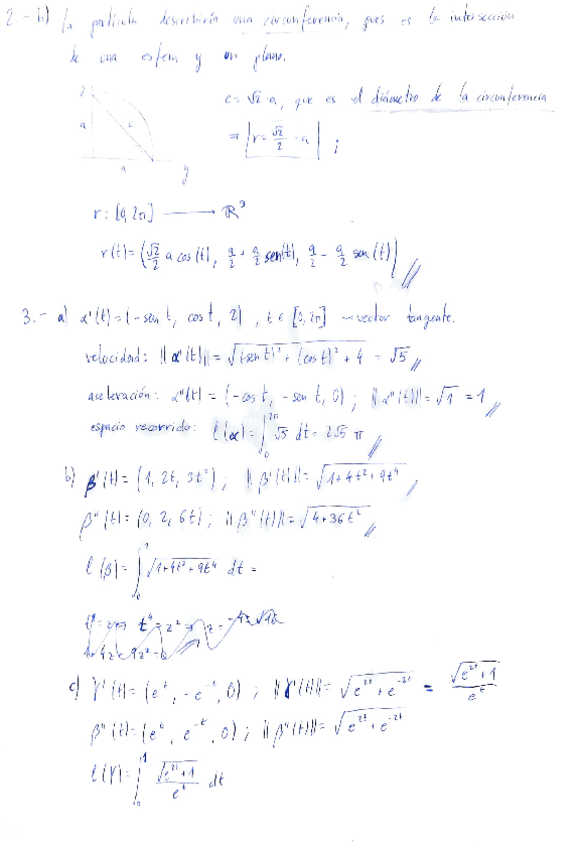 2.- b) La partícula describiría una circunferencia, pues es la intersección
de una esfera y un plano.
z
a
c
a
y
c = √2 · a, que es el diámetro de la circunferencia
⇒ r = √2/2 · a ;
r : [0, 2π] ⟶ ℝ³
r(t) = (√2/2 a cos(t), a/2 + a/2 sen(t), a/2 - a/2 sen(t)) //
3.- a) α'(t) = (-sen t, cos t, 2), t ∈ [0, 2π] → vector tangente.
velocidad: ||α'(t)|| = √((-sen t)² + (cos t)² + 4) = √5 //
aceleración: α''(t) = (-cos t, -sen t, 0) ; ||α''(t)|| = √1 = 1 //
espacio recorrido: l(α) = ∫₀^2π √5 dt = 2√5 π //
b) β'(t) = (1, 2t, 3t²) ; ||β'(t)|| = √(1 + 4t² + 9t⁴) //
β''(t) = (0, 2, 6t) ; ||β''(t)|| = √(4 + 36t²) //
l(β) = ∫₀ √(1 + 4t² + 9t⁴) dt =
t⁴ = z²
c) γ'(t) = (eᵗ, -e⁻ᵗ, 0) ; ||γ'(t)|| = √(e²ᵗ + e⁻²ᵗ) = √(e²ᵗ + 1)/eᵗ
β''(t) = (eᵗ, e⁻ᵗ, 0) ; ||β''(t)|| = √(e²ᵗ + e⁻²ᵗ)
l(γ) = ∫₀¹ √(e²ᵗ + 1)/eᵗ dt